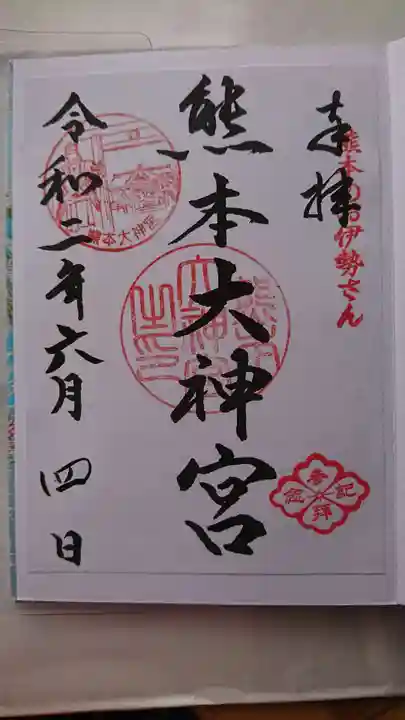 奉拝
熊本のお伊勢さん
熊本大神宮
熊本大神宮之印
参拝記念
熊本大神宮
令和二年六月四日